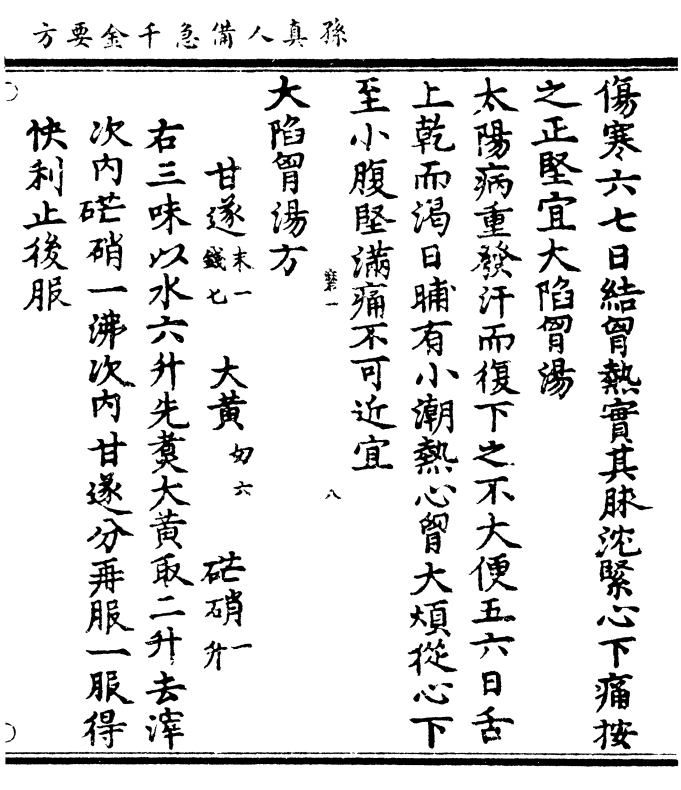 孫真人備急千金要方
傷寒六七日結胷熱實其脉沈緊心下痛按
之正堅宜大陷胷湯
太陽病重發汗而復下之不大便五六日舌
上乾而渴日晡有小潮熱心胷大煩從心下
至小腹堅滿痛不可近宜
八
大陷胷湯方
甘遂末一錢七 大黃六兩 硭硝一升
右三味以水六升先煑大黃取二升去滓
次内硭硝一沸次内甘遂分再服一服得
快利止後服